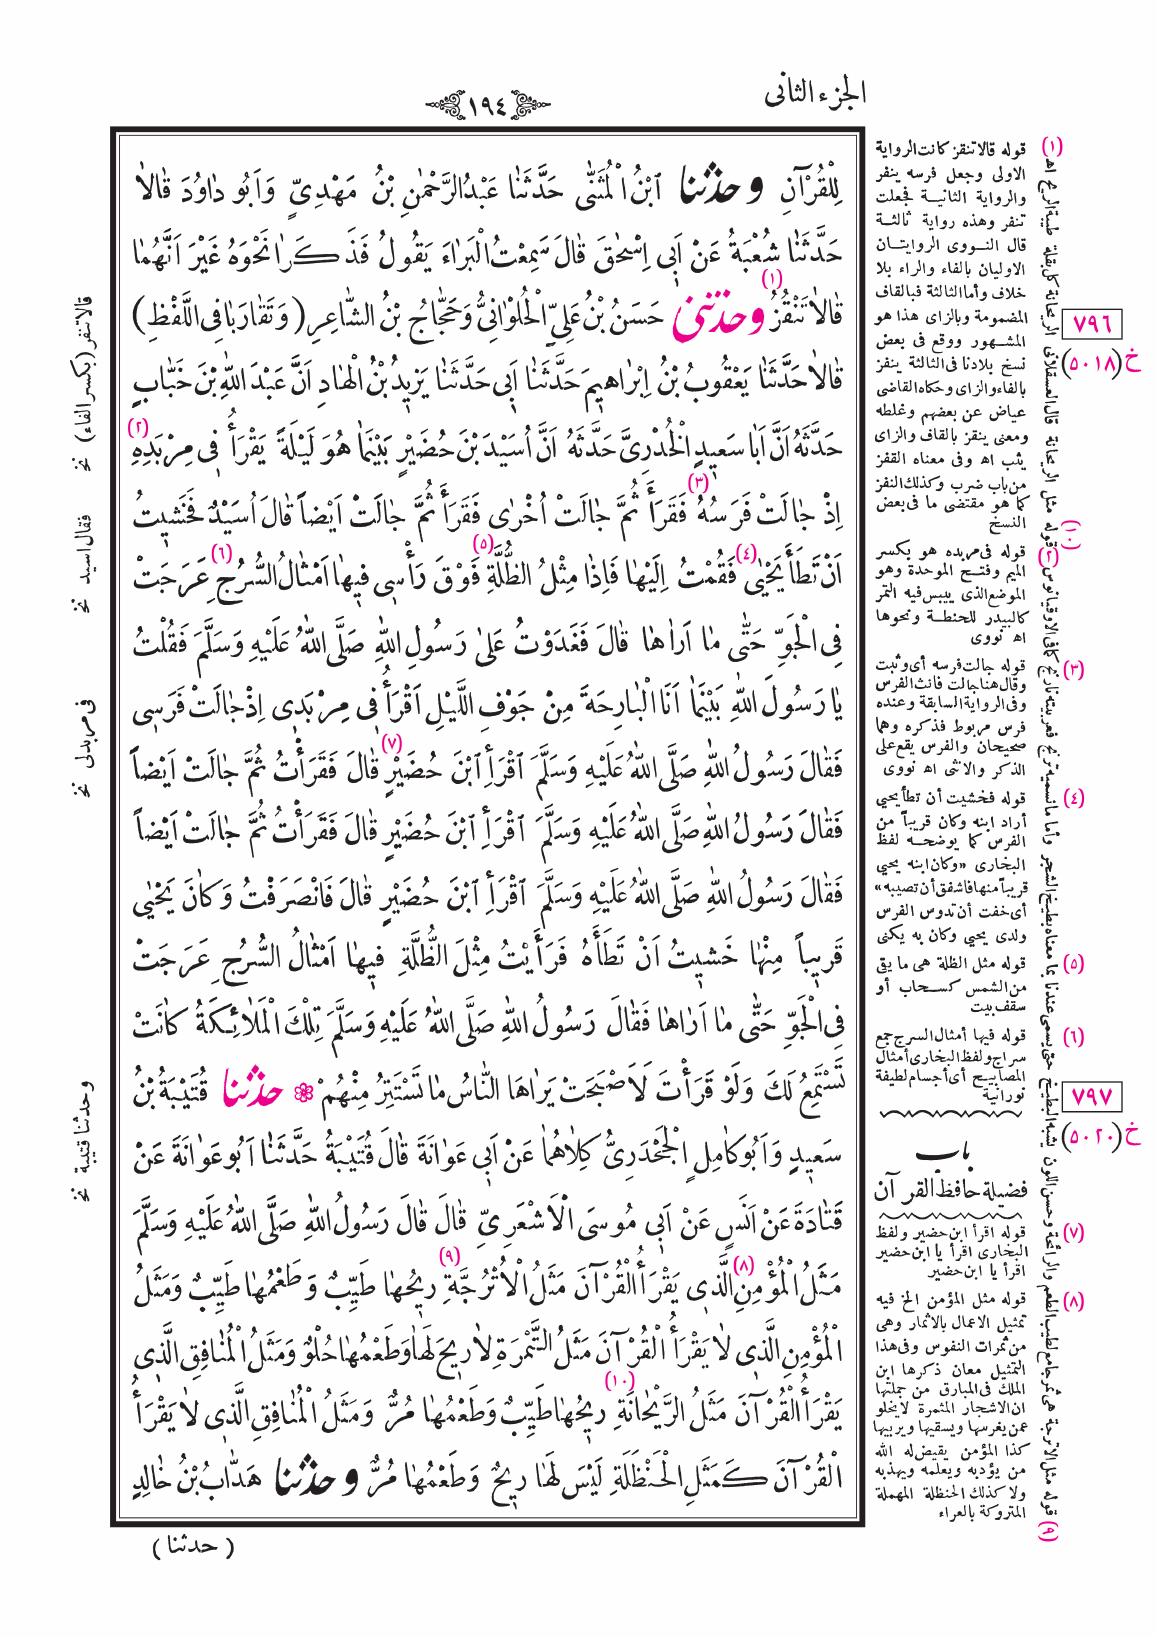 الجزء الثانى
١٩٤
لِلْقُرْآنِ وحدثنا ابْنُ الْمُثَنّٰى حَدَّثَنَا عَبْدُ الرَّحْمٰنِ بْنُ مَهْدِىٍّ وَاَبُو دَاوُدَ قَالَا
حَدَّثَنَا شُعْبَةُ عَنْ اَبِى اِسْحٰقَ قَالَ سَمِعْتُ الْبَرَاءَ يَقُولُ فَذَكَرَا نَحْوَهُ غَيْرَ اَنَّهُمَا
قَالَا تَنْقُزُ (١) وحدثنى حَسَنُ بْنُ عَلِىٍّ الْحُلْوَانِىُّ وَحَجَّاجُ بْنُ الشَّاعِرِ (وَتَقَارَبَا فِى اللَّفْظِ)
قَالَا حَدَّثَنَا يَعْقُوبُ بْنُ اِبْرَاهِيمَ حَدَّثَنَا اَبِى حَدَّثَنَا يَزِيدُ بْنُ الْهَادِ اَنَّ عَبْدَ اللّٰهِ بْنَ خَبَّابٍ
حَدَّثَهُ اَنَّ اَبَا سَعِيدٍ الْخُدْرِىَّ حَدَّثَهُ اَنَّ اُسَيْدَ بْنَ حُضَيْرٍ بَيْنَمَا هُوَ لَيْلَةً يَقْرَأُ فِى مِرْبَدِهِ (٢)
اِذْ جَالَتْ فَرَسُهُ (٣) فَقَرَأَ ثُمَّ جَالَتْ اُخْرٰى فَقَرَأَ ثُمَّ جَالَتْ اَيْضاً قَالَ اُسَيْدٌ فَخَشِيتُ
اَنْ تَطَأَ يَحْيٰى (٤) فَقُمْتُ اِلَيْهَا فَاِذَا مِثْلُ الظُّلَّةِ (٥) فَوْقَ رَأْسِى فِيهَا اَمْثَالُ السُّرُجِ (٦) عَرَجَتْ
فِى الْجَوِّ حَتّٰى مَا اَرَاهَا قَالَ فَغَدَوْتُ عَلٰى رَسُولِ اللّٰهِ صَلَّى اللّٰهُ عَلَيْهِ وَسَلَّمَ فَقُلْتُ
يَا رَسُولَ اللّٰهِ بَيْنَمَا اَنَا الْبَارِحَةَ مِنْ جَوْفِ اللَّيْلِ اَقْرَأُ فِى مِرْبَدِى اِذْ جَالَتْ فَرَسِى
فَقَالَ رَسُولُ اللّٰهِ صَلَّى اللّٰهُ عَلَيْهِ وَسَلَّمَ اقْرَأِ ابْنَ حُضَيْرٍ (٧) قَالَ فَقَرَأْتُ ثُمَّ جَالَتْ اَيْضاً
فَقَالَ رَسُولُ اللّٰهِ صَلَّى اللّٰهُ عَلَيْهِ وَسَلَّمَ اقْرَأِ ابْنَ حُضَيْرٍ قَالَ فَقَرَأْتُ ثُمَّ جَالَتْ اَيْضاً
فَقَالَ رَسُولُ اللّٰهِ صَلَّى اللّٰهُ عَلَيْهِ وَسَلَّمَ اقْرَأِ ابْنَ حُضَيْرٍ قَالَ فَانْصَرَفْتُ وَكَانَ يَحْيٰى
قَرِيباً مِنْهَا خَشِيتُ اَنْ تَطَأَهُ فَرَأَيْتُ مِثْلَ الظُّلَّةِ فِيهَا اَمْثَالُ السُّرُجِ عَرَجَتْ
فِى الْجَوِّ حَتّٰى مَا اَرَاهَا فَقَالَ رَسُولُ اللّٰهِ صَلَّى اللّٰهُ عَلَيْهِ وَسَلَّمَ تِلْكَ الْمَلَائِكَةُ كَانَتْ
تَسْتَمِعُ لَكَ وَلَوْ قَرَأْتَ لَاَصْبَحَتْ يَرَاهَا النَّاسُ مَا تَسْتَتِرُ مِنْهُمْ ❀ حدثنا قُتَيْبَةُ بْنُ
سَعِيدٍ وَاَبُو كَامِلٍ الْجَحْدَرِىُّ كِلَاهُمَا عَنْ اَبِى عَوَانَةَ قَالَ قُتَيْبَةُ حَدَّثَنَا اَبُو عَوَانَةَ عَنْ
قَتَادَةَ عَنْ اَنَسٍ عَنْ اَبِى مُوسَى الْاَشْعَرِىِّ قَالَ قَالَ رَسُولُ اللّٰهِ صَلَّى اللّٰهُ عَلَيْهِ وَسَلَّمَ
مَثَلُ الْمُؤْمِنِ (٨) الَّذِى يَقْرَأُ الْقُرْآنَ مَثَلُ الْاُتْرُجَّةِ (٩) رِيحُهَا طَيِّبٌ وَطَعْمُهَا طَيِّبٌ وَمَثَلُ
الْمُؤْمِنِ الَّذِى لَا يَقْرَأُ الْقُرْآنَ مَثَلُ التَّمْرَةِ لَا رِيحَ لَهَا وَطَعْمُهَا حُلْوٌ وَمَثَلُ الْمُنَافِقِ الَّذِى
يَقْرَأُ الْقُرْآنَ مَثَلُ الرَّيْحَانَةِ (١٠) رِيحُهَا طَيِّبٌ وَطَعْمُهَا مُرٌّ وَمَثَلُ الْمُنَافِقِ الَّذِى لَا يَقْرَأُ
الْقُرْآنَ كَمَثَلِ الْحَنْظَلَةِ لَيْسَ لَهَا رِيحٌ وَطَعْمُهَا مُرٌّ وحدثنا هَدَّابُ بْنُ خَالِدٍ
( حدثنا )
(١) قوله قالا تنقز كانت الرواية
الاولى وجعل فرسه ينفر
والرواية الثانيــة فجعلت
تنفر وهذه رواية ثالثــة
قال النــووى الروايتــان
الاوليان بالفاء والراء بلا
خلاف وأما الثالثة فبالقاف
المضمومة وبالزاى هذا هو
المشــهور ووقع فى بعض
نسخ بلادنا فى الثالثة ينفز
بالفاء والزاى وحكاه القاضى
عياض عن بعضهم وغلطه
ومعنى ينقز بالقاف والزاى
يثب اه وفى معناه القفز
من باب ضرب وكذلك النقز
كما هو مقتضى ما فى بعض
النسخ
(٢) قوله فى مربده هو بكسر
الميم وفتــح الموحدة وهو
الموضع الذى ييبس فيه التمر
كالبيدر للحنطــة ونحوها
اه نووى
(٣) قوله جالت فرسه أى وثبت
وقال هنا جالت فانث الفرس
وفى الرواية السابقة وعنده
فرس مربوط فذكره وهما
صحيحان والفرس يقع على
الذكر والانثى اه نووى
(٤) قوله فخشيت أن تطأ يحيى
أراد ابنه وكان قريباً من
الفرس كما يوضحــه لفظ
البخارى «وكان ابنه يحيى
قريباً منها فاشفق أن تصيبه»
أى خفت أن تدوس الفرس
ولدى يحيى وكان به يكنى
(٥) قوله مثل الظلة هى ما يقى
من الشمس كســحاب أو
سقف بيت
(٦) قوله فيها أمثال السرج جمع
سراج ولفظ البخارى أمثال
المصابيــح أى أجسام لطيفة
نورانية
باب
فضيلة حافظ القرآن
(٧) قوله اقرأ ابن حضير ولفظ
البخارى اقرأ يا ابن حضير
اقرأ يا ابن حضير
(٨) قوله مثل المؤمن الخ فيه
تمثيل الاعمال بالاثمار وهى
من ثمرات النفوس وفى هذا
التمثيل معان ذكرها ابن
الملك فى المبارق من جملتها
ان الاشجار المثمرة لا يخلو
عمن يغرسها ويسقيها ويربيها
كذا المؤمن يقيض له الله
من يؤدبه ويعلمه ويهذبه
ولا كذلك الحنظلة المهملة
المتروكة بالعراء
(٩) قوله مثل الاترجة هى ثمر جامع لطيب الطعم والرائحة وحسن اللون يشبه البطيخ حتى يسمى عندنا بما معناه بطيخ الشجر وأما ما نسميه ترنج فعربيته نارنج كما فى الاوقيانوس
(١٠) قوله مثل الريحانة قال العسقلانى الريحانة كل بقلة طيبة الريح اه
٧٩٦
خ (٥٠١٨)
٧٩٧
خ (٥٠٢٠)
قالا تنفر (بكسر الفاء) نخ
فقال اسيد نخ
فى مربدلى نخ
وحدثنا قتيبة نخ